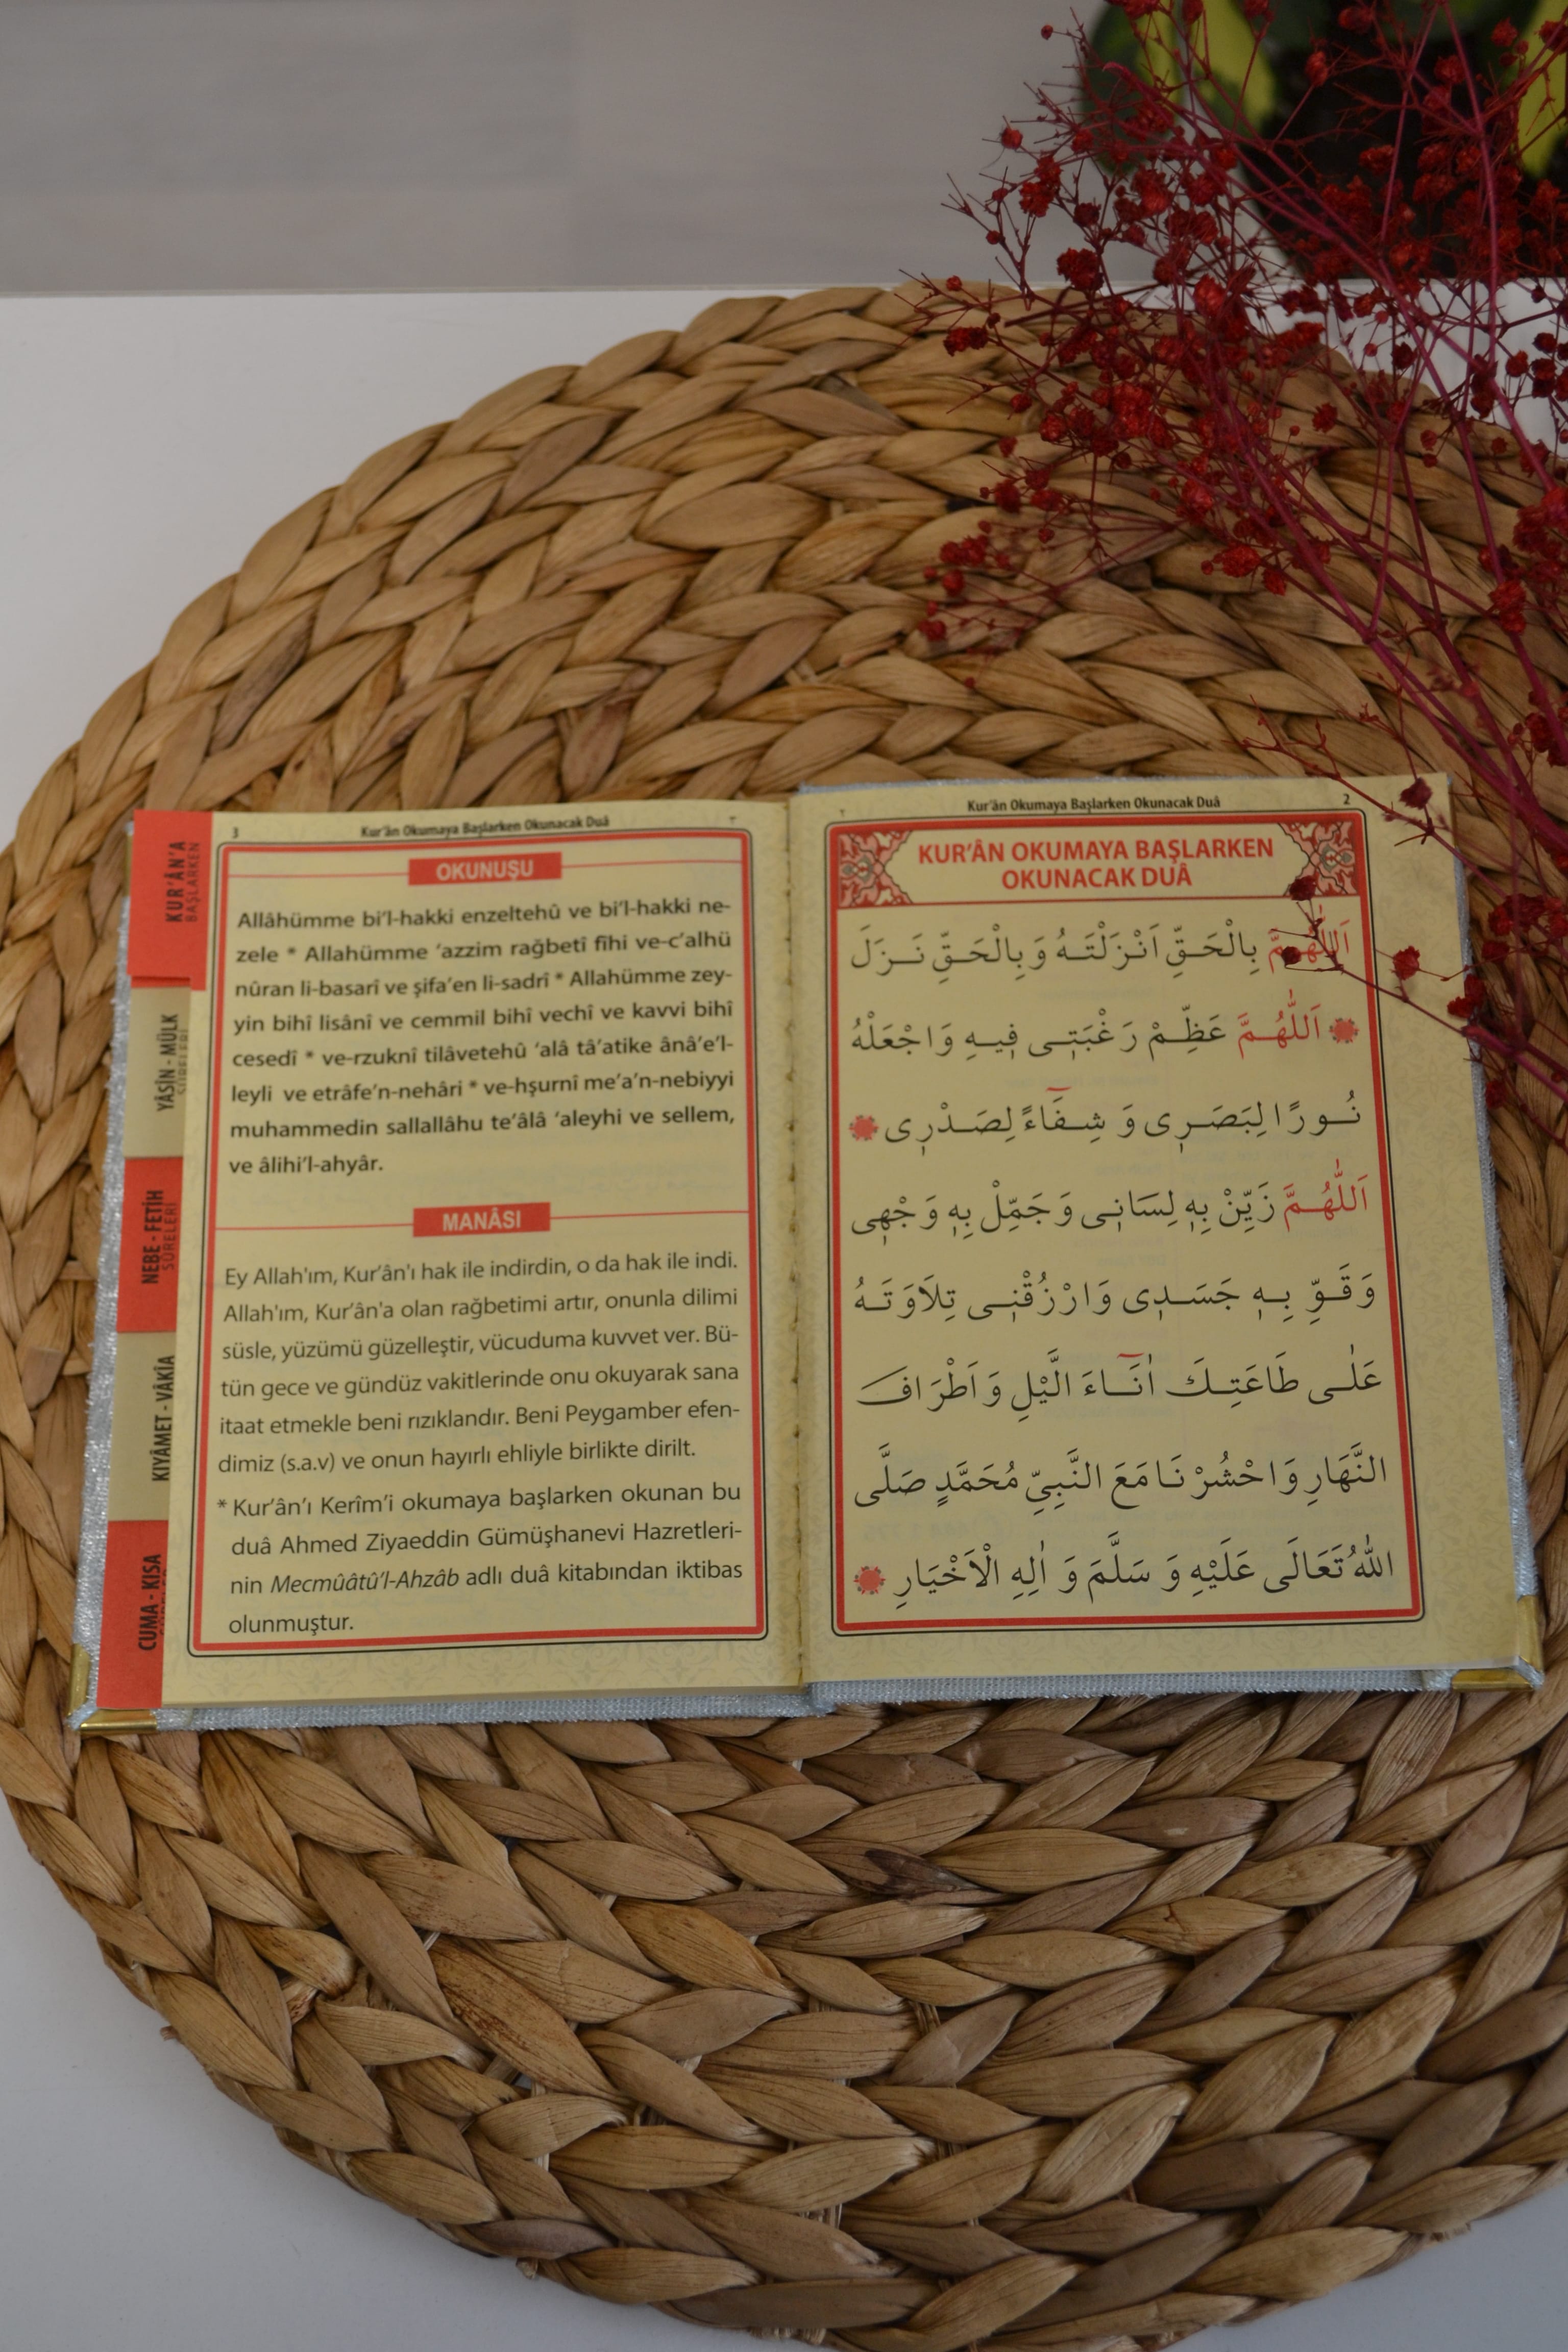 Kur'ân Okumaya Başlarken Okunacak Duâ 2
KUR'ÂN OKUMAYA BAŞLARKEN
OKUNACAK DUÂ
اَللّٰهُمَّ بِالْحَقِّ اَنْزَلْتَهُ وَبِالْحَقِّ نَزَلَ
اَللّٰهُمَّ عَظِّمْ رَغْبَتِى فِيهِ وَاجْعَلْهُ
نُورًا لِبَصَرِى وَ شِفَاءً لِصَدْرِى
اَللّٰهُمَّ زَيِّنْ بِهِ لِسَانِى وَجَمِّلْ بِهِ وَجْهِى
وَقَوِّ بِهِ جَسَدِى وَارْزُقْنِى تِلَاوَتَهُ
عَلٰى طَاعَتِكَ اٰنَاءَ الَّيْلِ وَاَطْرَافَ
النَّهَارِ وَاحْشُرْنَا مَعَ النَّبِيِّ مُحَمَّدٍ صَلَّى
اللّٰهُ تَعَالَى عَلَيْهِ وَ سَلَّمَ وَ اٰلِهِ الْاَخْيَارِ
3 Kur'ân Okumaya Başlarken Okunacak Duâ
OKUNUŞU
Allâhümme bi'l-hakki enzeltehû ve bi'l-hakki ne-
zele * Allahümme 'azzim rağbetî fîhi ve-c'alhü
nûran li-basarî ve şifa'en li-sadrî * Allahümme zey-
yin bihî lisânî ve cemmil bihî vechî ve kavvi bihî
cesedî * ve-rzuknî tilâvetehû 'alâ tâ'atike ânâ'e'l-
leyli ve etrâfe'n-nehâri * ve-hşurnî me'a'n-nebiyyi
muhammedin sallallâhu te'âlâ 'aleyhi ve sellem,
ve âlihi'l-ahyâr.
MANÂSI
Ey Allah'ım, Kur'ân'ı hak ile indirdin, o da hak ile indi.
Allah'ım, Kur'ân'a olan rağbetimi artır, onunla dilimi
süsle, yüzümü güzelleştir, vücuduma kuvvet ver. Bü-
tün gece ve gündüz vakitlerinde onu okuyarak sana
itaat etmekle beni rızıklandır. Beni Peygamber efen-
dimiz (s.a.v) ve onun hayırlı ehliyle birlikte dirilt.
* Kur'ân'ı Kerîm'i okumaya başlarken okunan bu
duâ Ahmed Ziyaeddin Gümüşhanevi Hazretleri-
nin Mecmûâtû'l-Ahzâb adlı duâ kitabından iktibas
olunmuştur.
KUR'ÂN'A
BAŞLARKEN
YÂSİN - MÜLK
NEBE - FETİH
SÛRELERİ
KIYÂMET - VÂKIA
CUMA - KISA